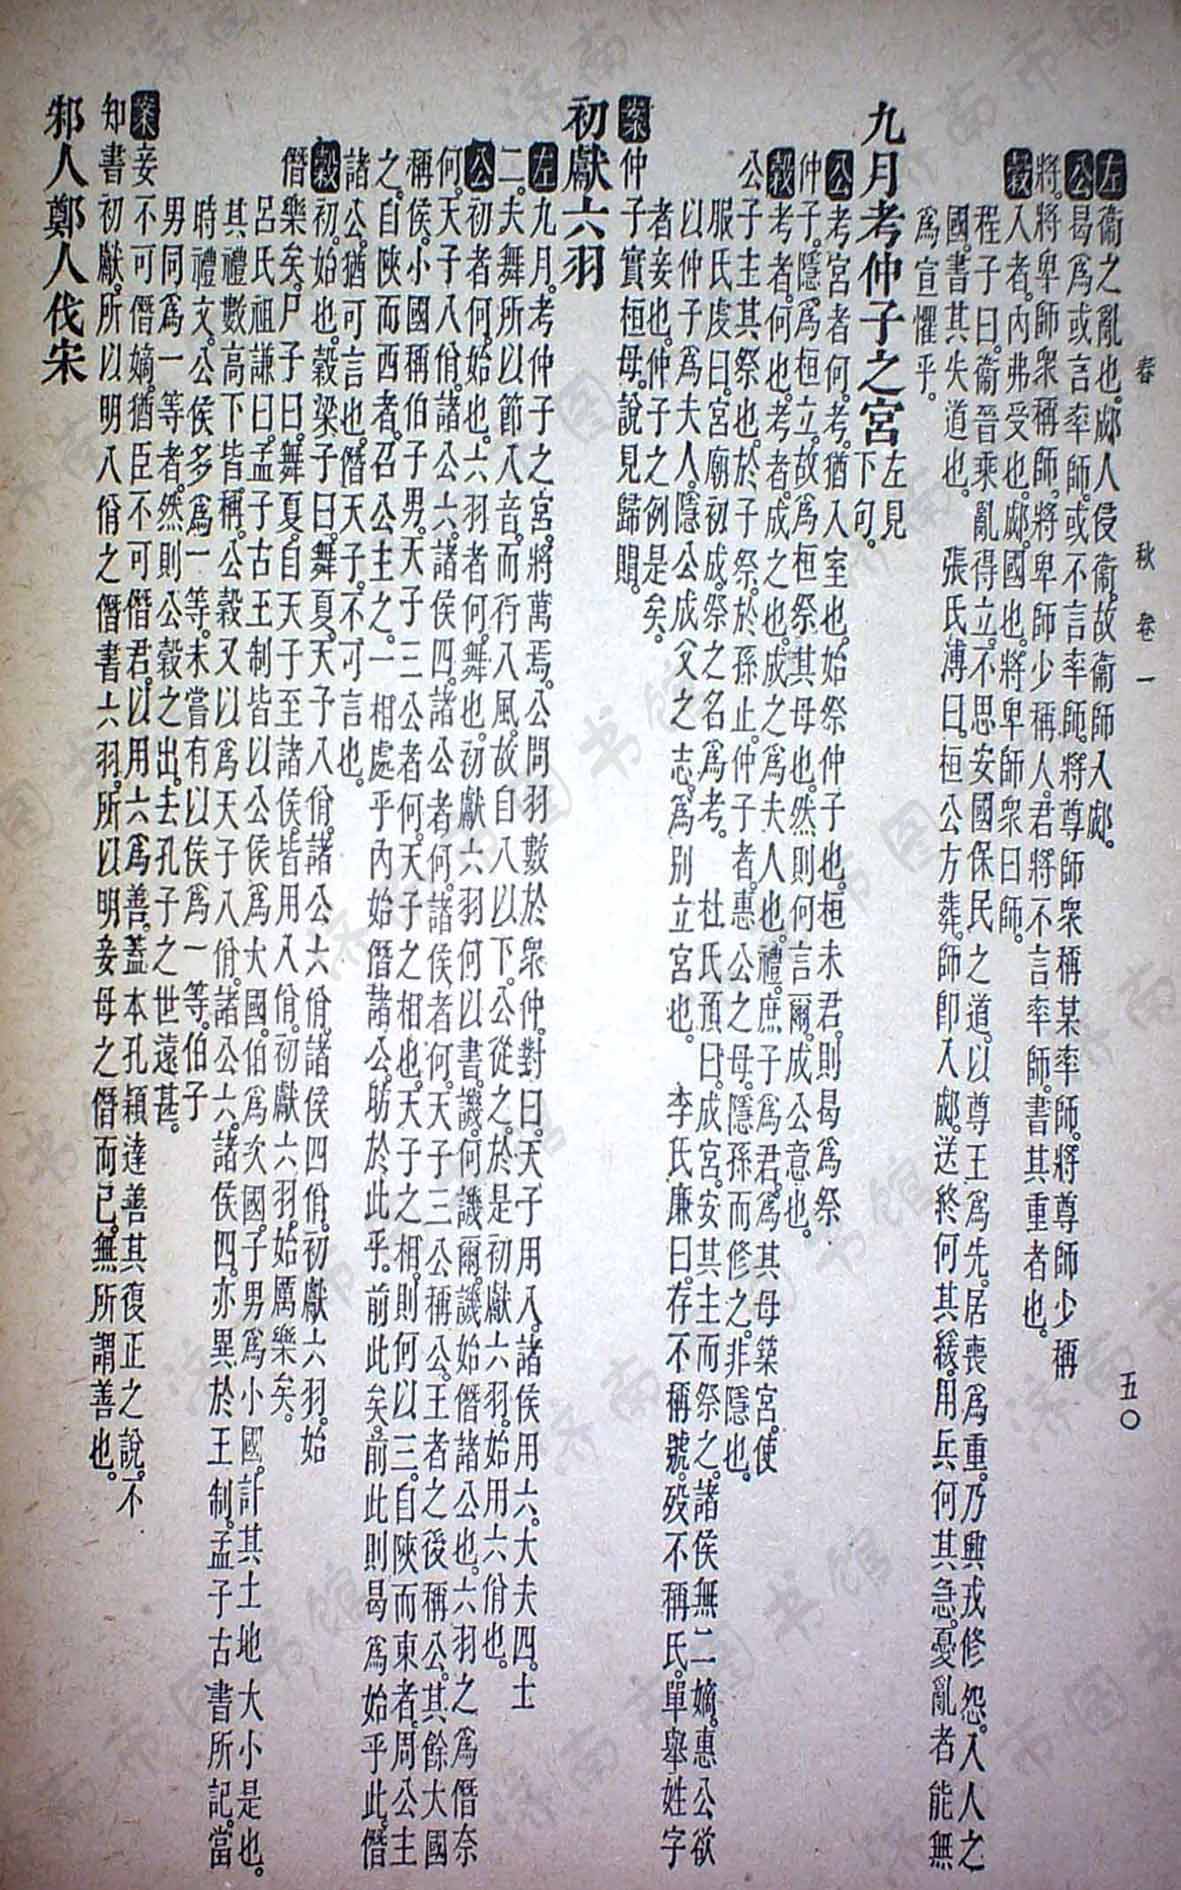 春秋 卷一 五〇
左 衞之亂也。郕人侵衞。故衞師入郕。
公 曷爲或言率師。或不言率師。將尊師衆稱某率師。將尊師少稱
將。將卑師衆稱師。將卑師少稱人。君將不言率師。書其重者也。
穀 入者。內弗受也。郕。國也。將卑師衆曰師。
程子曰。衞晉乘亂得立。不思安國保民之道。以尊王爲先。居喪爲重。乃興戎修怨。入人之
國。書其失道也。 張氏溥曰。桓公方葬。師卽入郕。送終何其緩。用兵何其急。憂亂者能無
爲宣懼乎。
九月考仲子之宮 左見下句。
公 考宮者何。考。猶入室也。始祭仲子也。桓未君。則曷爲祭
仲子。隱爲桓立。故爲桓祭其母也。然則何言爾。成公意也。
穀 考者。何也。考者。成之也。成之爲夫人也。禮。庶子爲君。爲其母築宮。使
公子主其祭也。於子祭。於孫止。仲子者。惠公之母。隱孫而修之。非隱也。
服氏虔曰。宮廟初成。祭之名爲考。 杜氏預曰。成宮。安其主而祭之。諸侯無二嫡。惠公欲
以仲子爲夫人。隱公成父之志。爲別立宮也。 李氏廉曰。存不稱號。歿不稱氏。單舉姓字
者。妾也。仲子之例是矣。
案 仲子實桓母。說見歸賵。
初獻六羽
左 九月。考仲子之宮。將萬焉。公問羽數於衆仲。對曰。天子用八。諸侯用六。大夫四。士
二。夫舞所以節八音。而行八風。故自八以下。公從之。於是初獻六羽。始用六佾也。
公 初者何。始也。六羽者何。舞也。初獻六羽何以書。譏。何譏爾。譏始僭諸公也。六羽之爲僭奈
何。天子八佾。諸公六。諸侯四。諸公者何。諸侯者何。天子三公稱公。王者之後稱公。其餘大國
稱侯。小國稱伯子男。天子三公者何。天子之相也。天子之相。則何以三。自陝而東者。周公主
之。自陝而西者。召公主之。一相處乎內。始僭諸公。昉於此乎。前此矣。前此則曷爲始乎此。僭
諸公。猶可言也。僭天子。不可言也。
穀 初。始也。穀梁子曰。舞夏。天子八佾。諸公六佾。諸侯四佾。初獻六羽。始
僭樂矣。尸子曰。舞夏。自天子至諸侯。皆用八佾。初獻六羽。始厲樂矣。
呂氏祖謙曰。孟子古王制。皆以公侯爲大國。伯爲次國。子男爲小國。計其土地大小是也。
其禮數高下皆稱。公穀又以爲天子八佾。諸公六。諸侯四。亦異於王制。孟子古書所記。當
時禮文。公侯多爲一等。未嘗有以侯爲一等。伯子
男同爲一等者。然則公穀之出。去孔子之世遠甚。
案 妾不可僭嫡。猶臣不可僭君。以用六爲善。蓋本孔穎達善其復正之說。不
知書初獻。所以明八佾之僭。書六羽。所以明妾母之僭而已。無所謂善也。
邾人鄭人伐宋